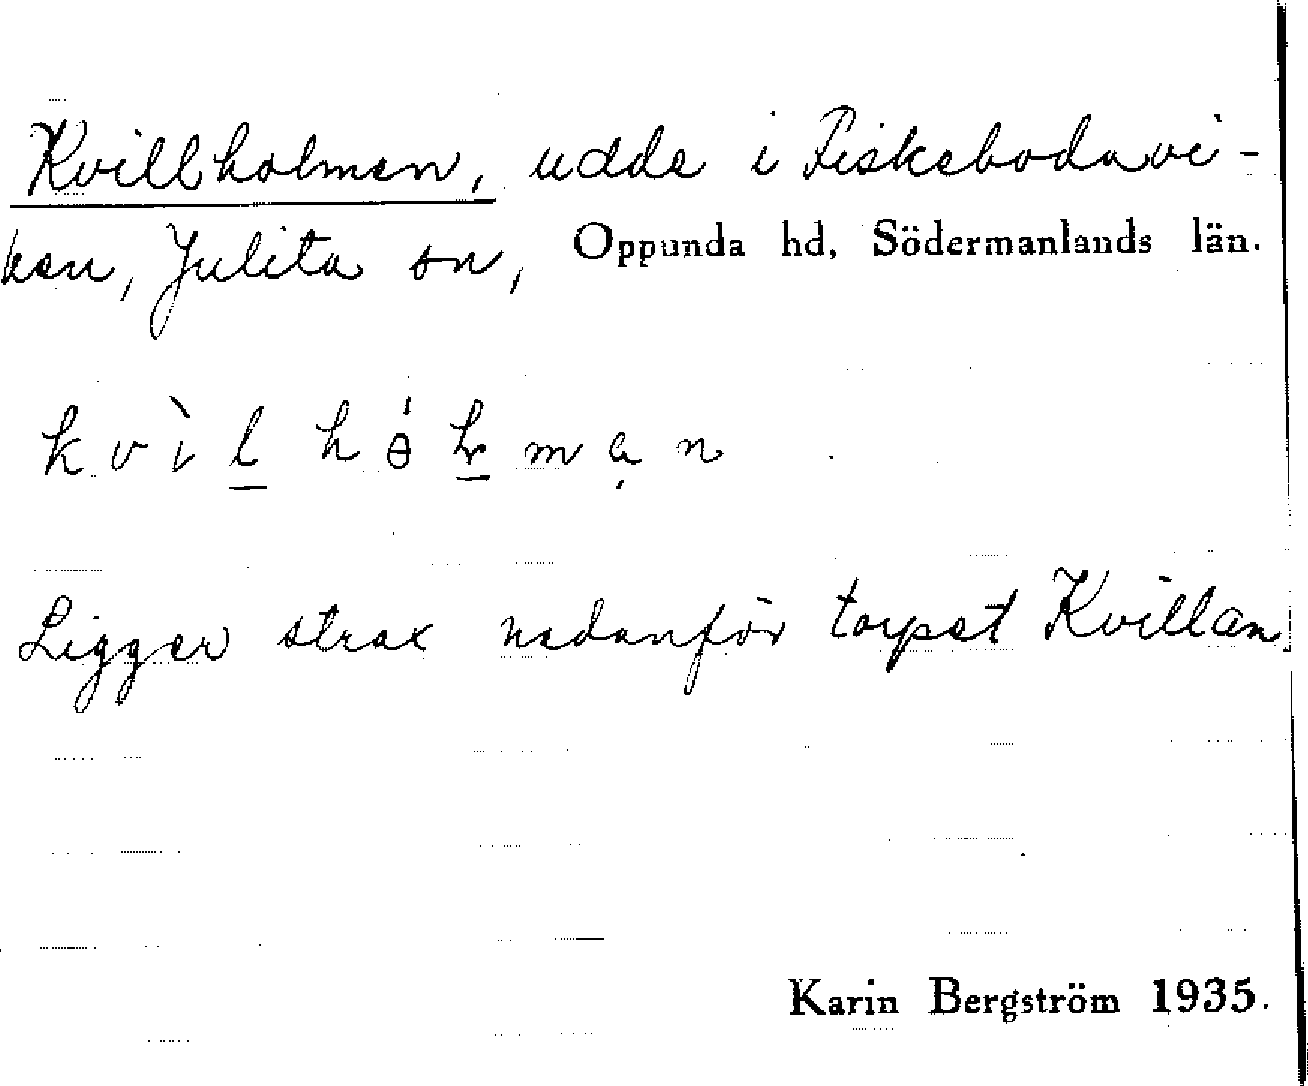 Kvillholmen, udde i Fiskebodavi-
ken, Julita sn, Oppunda hd, Södermanlands län.
Ligger strax nedanför torpet Kvillen.
Karin Bergström 1935.